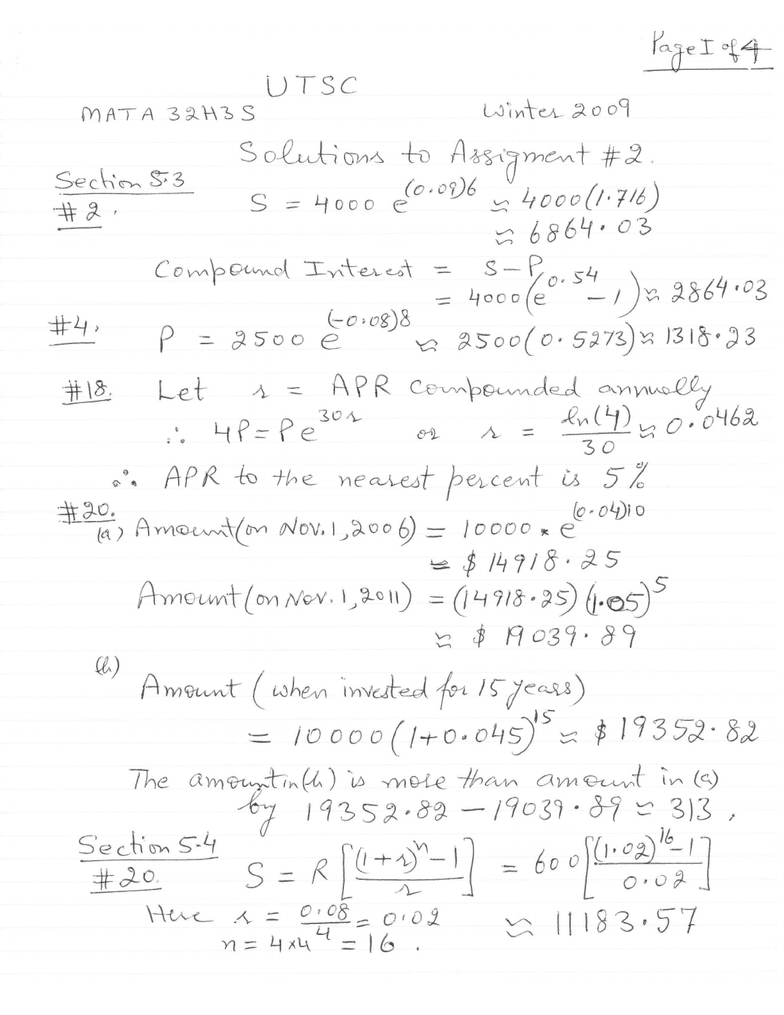 Page I of 4
UTSC
MATA 32H3S Winter 2009
Solutions to Assigment #2.
Section 5.3
#2. S = 4000 e^(0.09)6 ≈ 4000(1.716)
≈ 6864.03
Compound Interest = S-P
= 4000(e^0.54 - 1) ≈ 2864.03
#4. P = 2500 e^(-0.08)8 ≈ 2500(0.5273) ≈ 1318.23
#18. Let r = APR compounded annually
∴ 4P = Pe^30r or r = ln(4)/30 ≈ 0.0462
∴ APR to the nearest percent is 5%
#20.
(a) Amount (on Nov. 1, 2006) = 10000 * e^(0.04)10
≈ $14918.25
Amount (on Nov. 1, 2011) = (14918.25)(1.05)^5
≈ $ 19039.89
(b)
Amount (when invested for 15 years)
= 10000(1+0.045)^15 ≈ $19352.82
The amount in (b) is more than amount in (a)
by 19352.82 - 19039.89 ≈ 313.
Section 5.4
#20. S = R[((1+r)^n - 1)/r] = 600[((1.02)^16 - 1)/0.02]
Here r = 0.08/4 = 0.02 ≈ 11183.57
n = 4x4 = 16.